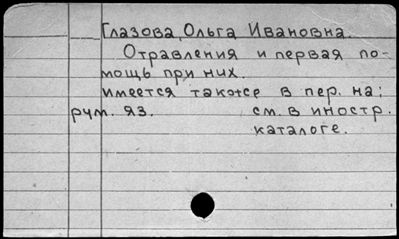 Глазова, Ольга Ивановна.
Отравления и первая по-
мощь при них.
имеется также в пер. на:
рум. яз. см. в иностр.
каталоге.